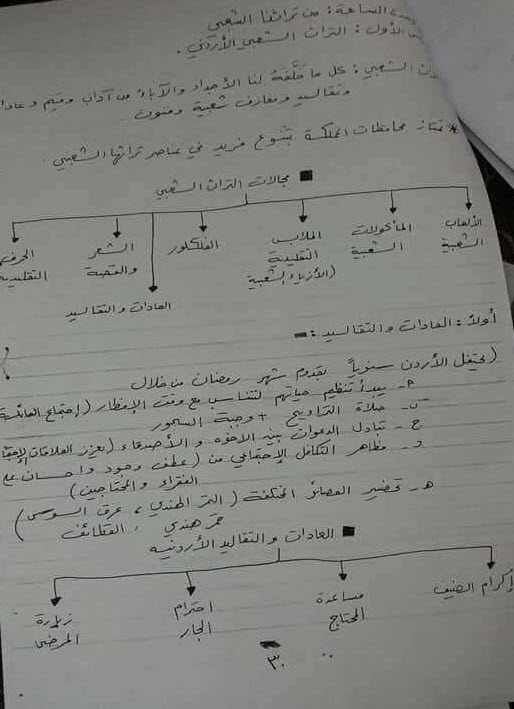 الساعة: من تراثنا الشعبي
الأول: التراث الشعبي الأردني.
الشعبي: كل ما خلّفه لنا الأجداد والآباء من آداب وقيم وعادات
وتقاليد ومعارف شعبية وفنون.
* تمتاز محافظات المملكة بتنوع فريد في عناصر تراثها الشعبي.
مجالات التراث الشعبي
الألعاب الشعبية
المأكولات الشعبية
الملابس التقليدية (الأزياء الشعبية)
الفلكلور
العادات والتقاليد
الشعر والقصة
الحرف التقليدية
أولاً: العادات والتقاليد:-
(يحتفل الأردن سنوياً بقدوم شهر رمضان من خلال
أ- يبدأ تنظيم حياتهم لتتناسب مع وقت الإفطار (إجتماع العائلة
ب- صلاة التراويح + وجبة السحور
ج- تبادل الدعوات بين الاخوه والأصدقاء (تعزيز العلاقات
د- مظاهر التكافل الإجتماعي من (عطف وجود واحسان على
الفقراء والمحتاجين)
هـ- تحضير العصائر المختلفة (التمر الهندي، عرق السوس)
تمر هندي، القطائف
العادات والتقاليد الأردنيه
إكرام الضيف
مساعدة المحتاج
احترام الجار
زيارة المرضى
٣٠